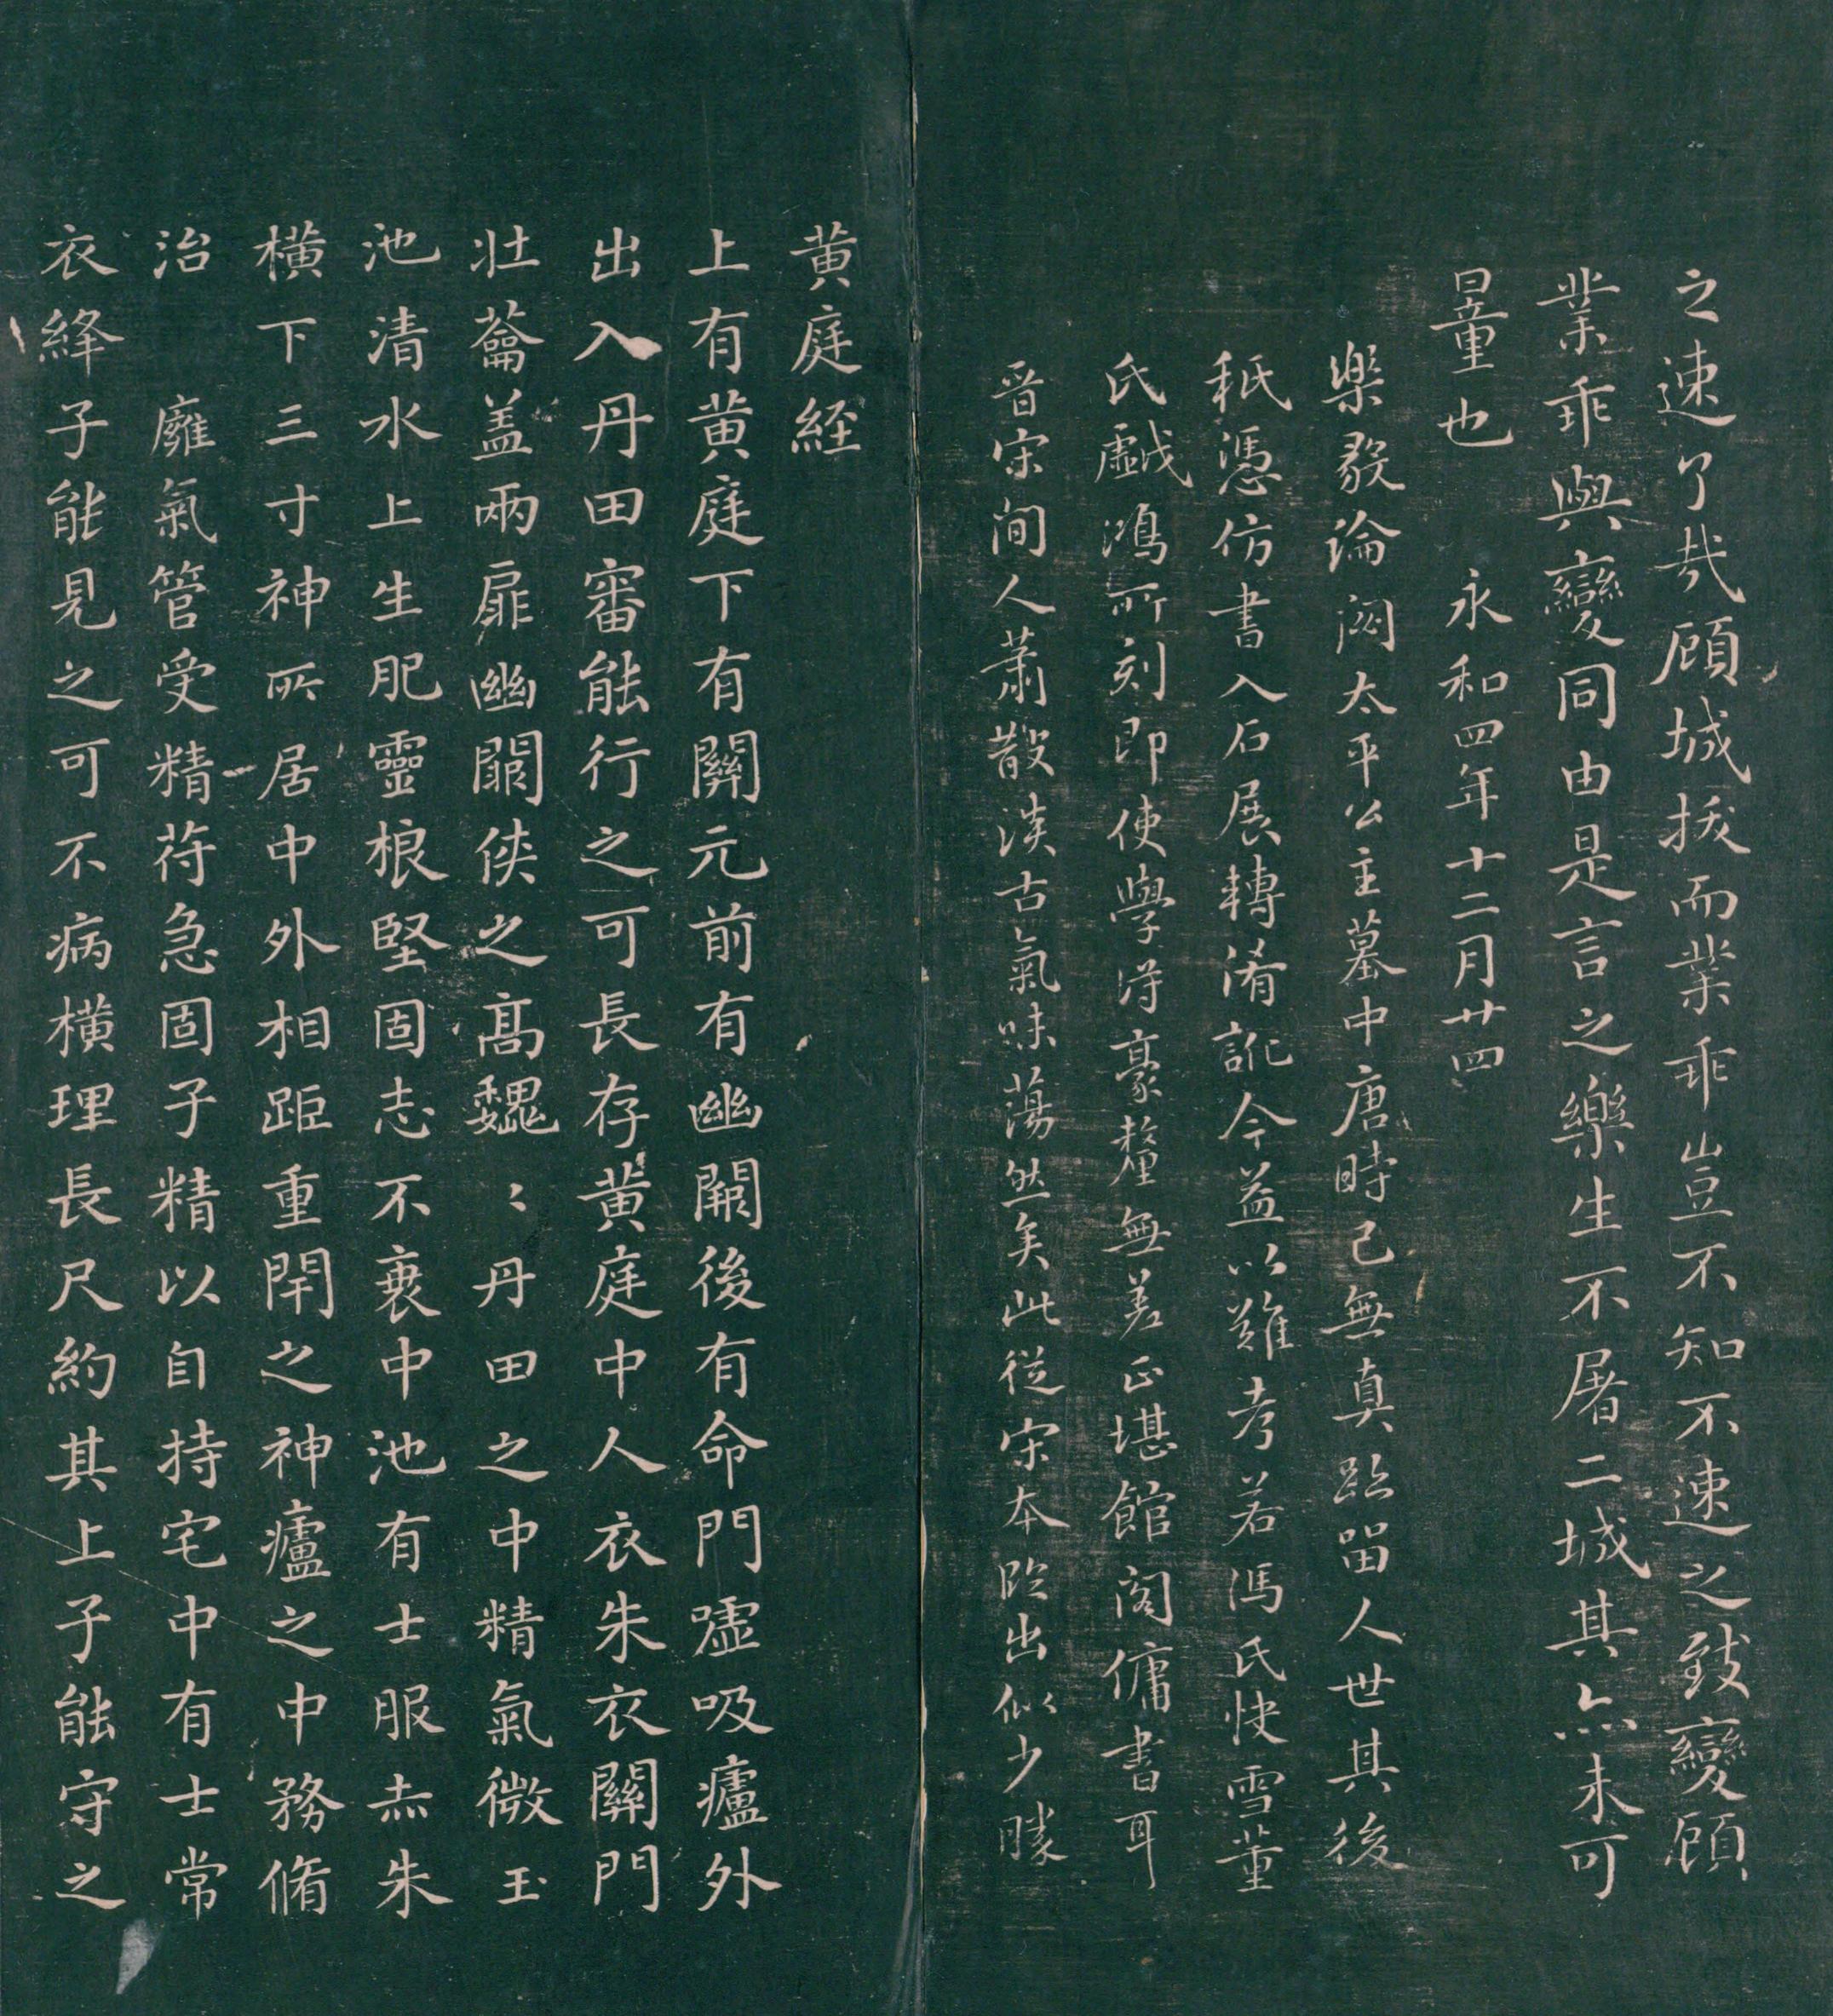 之速了哉顧城拔而業乖豈不知不速之致變顧
業乖與變同由是言之樂生不屠二城其亦未可
量也　永和四年十二月廿四
樂毅論闕太平公主墓中唐時已無真跡留人世其後
秖憑仿書入石展轉淆訛今益以難考若馮氏快雪董
氏戲鴻所刻即使學得豪釐無差正堪館閣傭書耳
晋宋間人蕭散淡古氣味蕩然矣此從宋本臨出似少勝
黄庭経
上有黄庭下有關元前有幽闕後有命門嘘吸廬外
出入丹田審能行之可長存黄庭中人衣朱衣關門
壮蘥盖兩扉幽闕俠之高魏〻丹田之中精氣微玉
池清水上生肥靈根堅固志不衰中池有士服赤朱
横下三寸神所居中外相距重閇之神廬之中務脩
治　廱氣管受精苻急固子精以自持宅中有士常
衣絳子能見之可不病横理長尺約其上子能守之